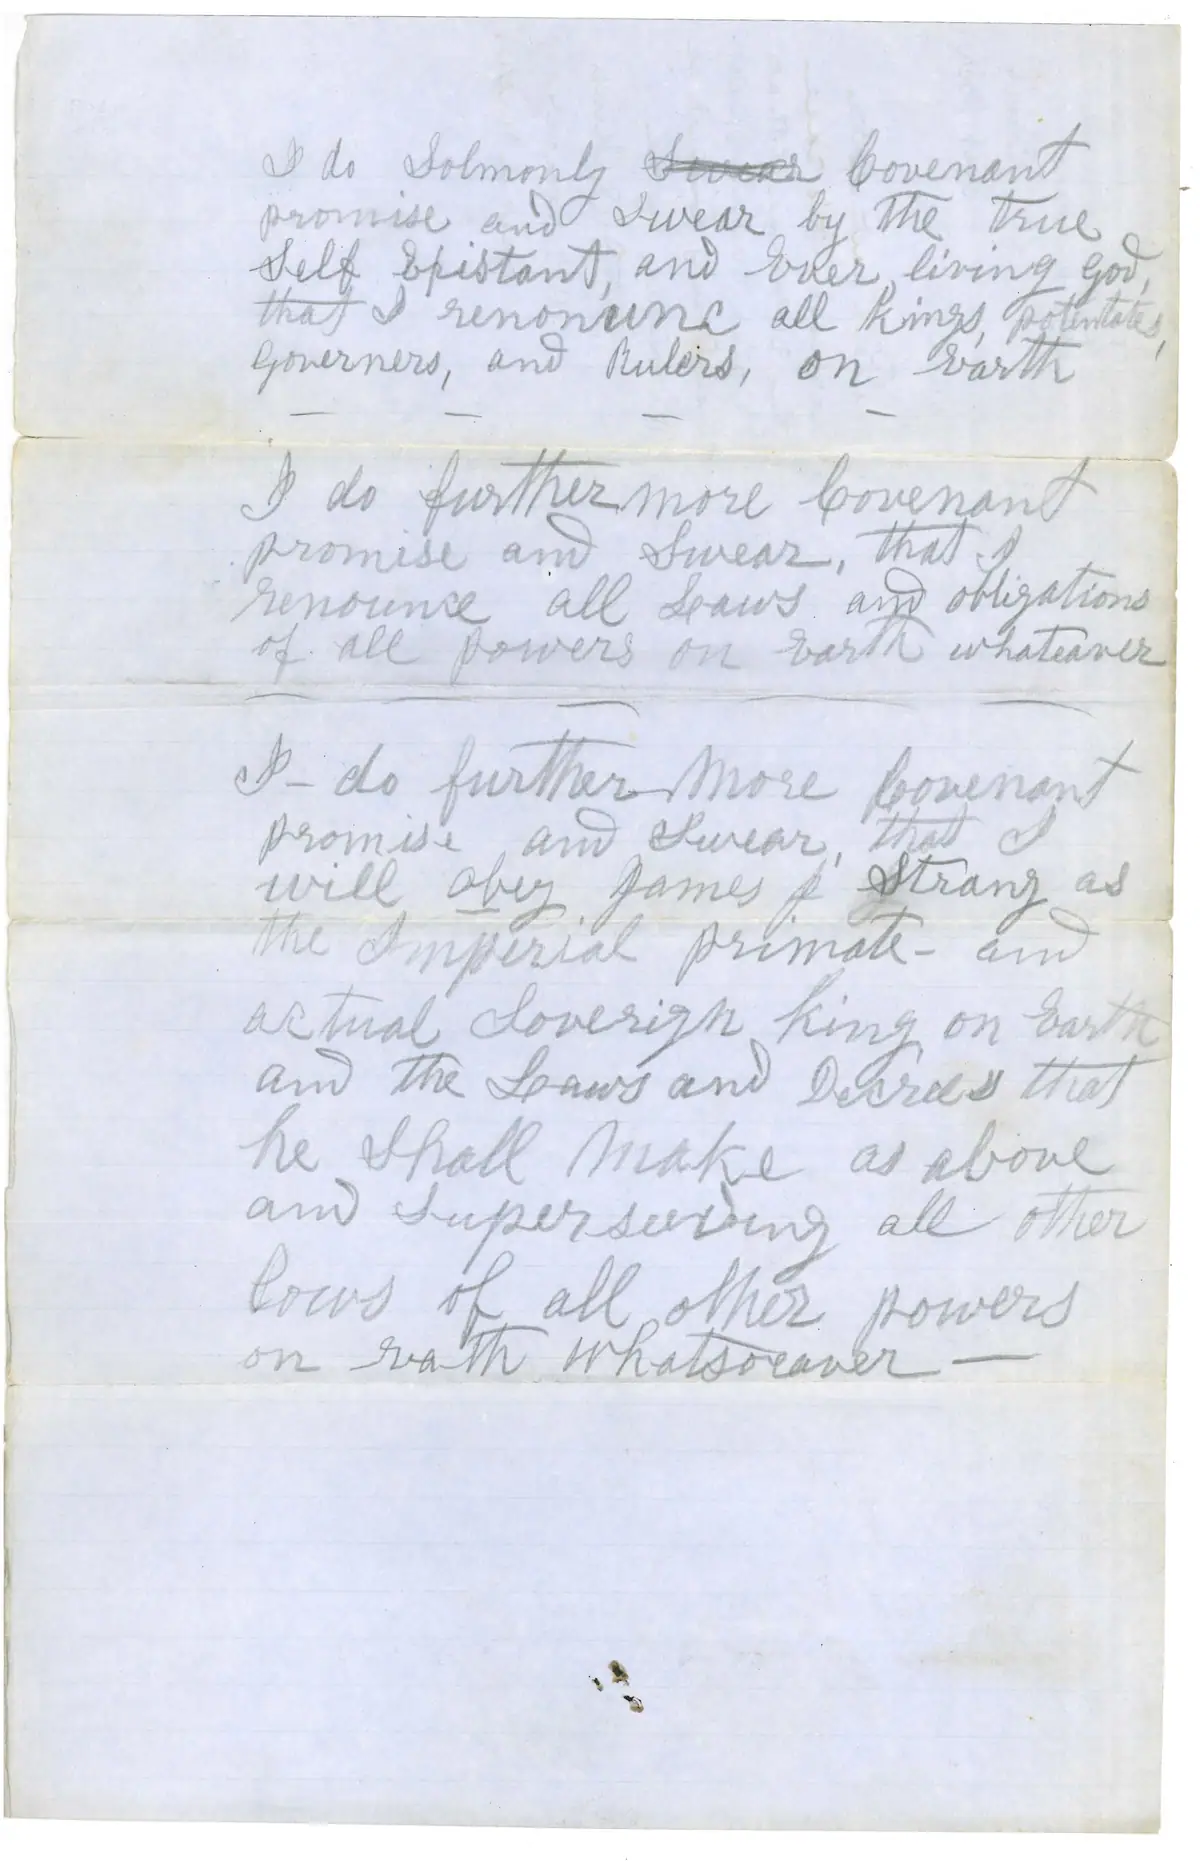 I do Solmonly ~~Swear~~ Covenant
promise and Swear by the true
Self Epistant, and Ever living God,
that I renoncunc all Kings, potentates,
Governers, and Rulers, on Earth
— — — —
I do furthermore Covenant
promise and Swear, that I
renounce all Laws and obligations
of all powers on Earth whateaver
I — do further More Covenant
promise and Swear, that I
will obey James J Strang as
the Imperial primate — and
actual Soverign King on Earth
and the Laws and Decrees that
he Shall Make as above
and Superseeding all other
Lows of all other powers
on Earth Whatsoeaver —